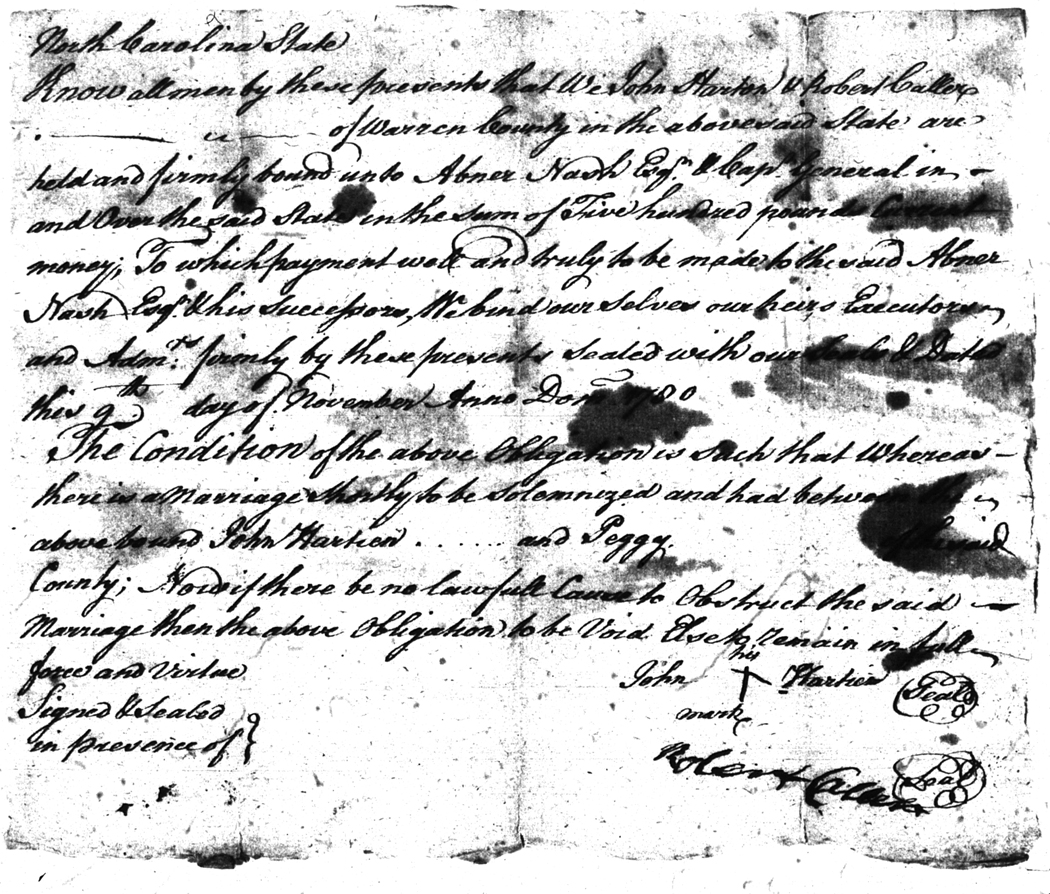 North Carolina State
Know all men by these presents that We John Harton & Robert Caller
of Warren County in the abovesaid State are
held and firmly bound unto Abner Nash Esqr. & Capt. General in
and Over the said State in the sum of Five hundred pounds Current
money; To which payment well and truly to be made to the said Abner
Nash Esqr. & his successors, We bind our selves our heirs Executors
and Admrs. firmly by these presents Sealed with our Seals & Dated
this 9th day of November Anno Dom 1780
The Condition of the above Obligation is such that Whereas
there is a Marriage Shortly to be Solemnized and had between the
above bound John Hartien ...... and Peggy. of the said
County; Now if there be no lawfull Cause to Obstruct the said
Marriage then the above Obligation to be Void Else to remain in full
force and Virtue
his
John Hartien Seal
mark
Signed & Sealed
in presence of
Robert Caller Seal